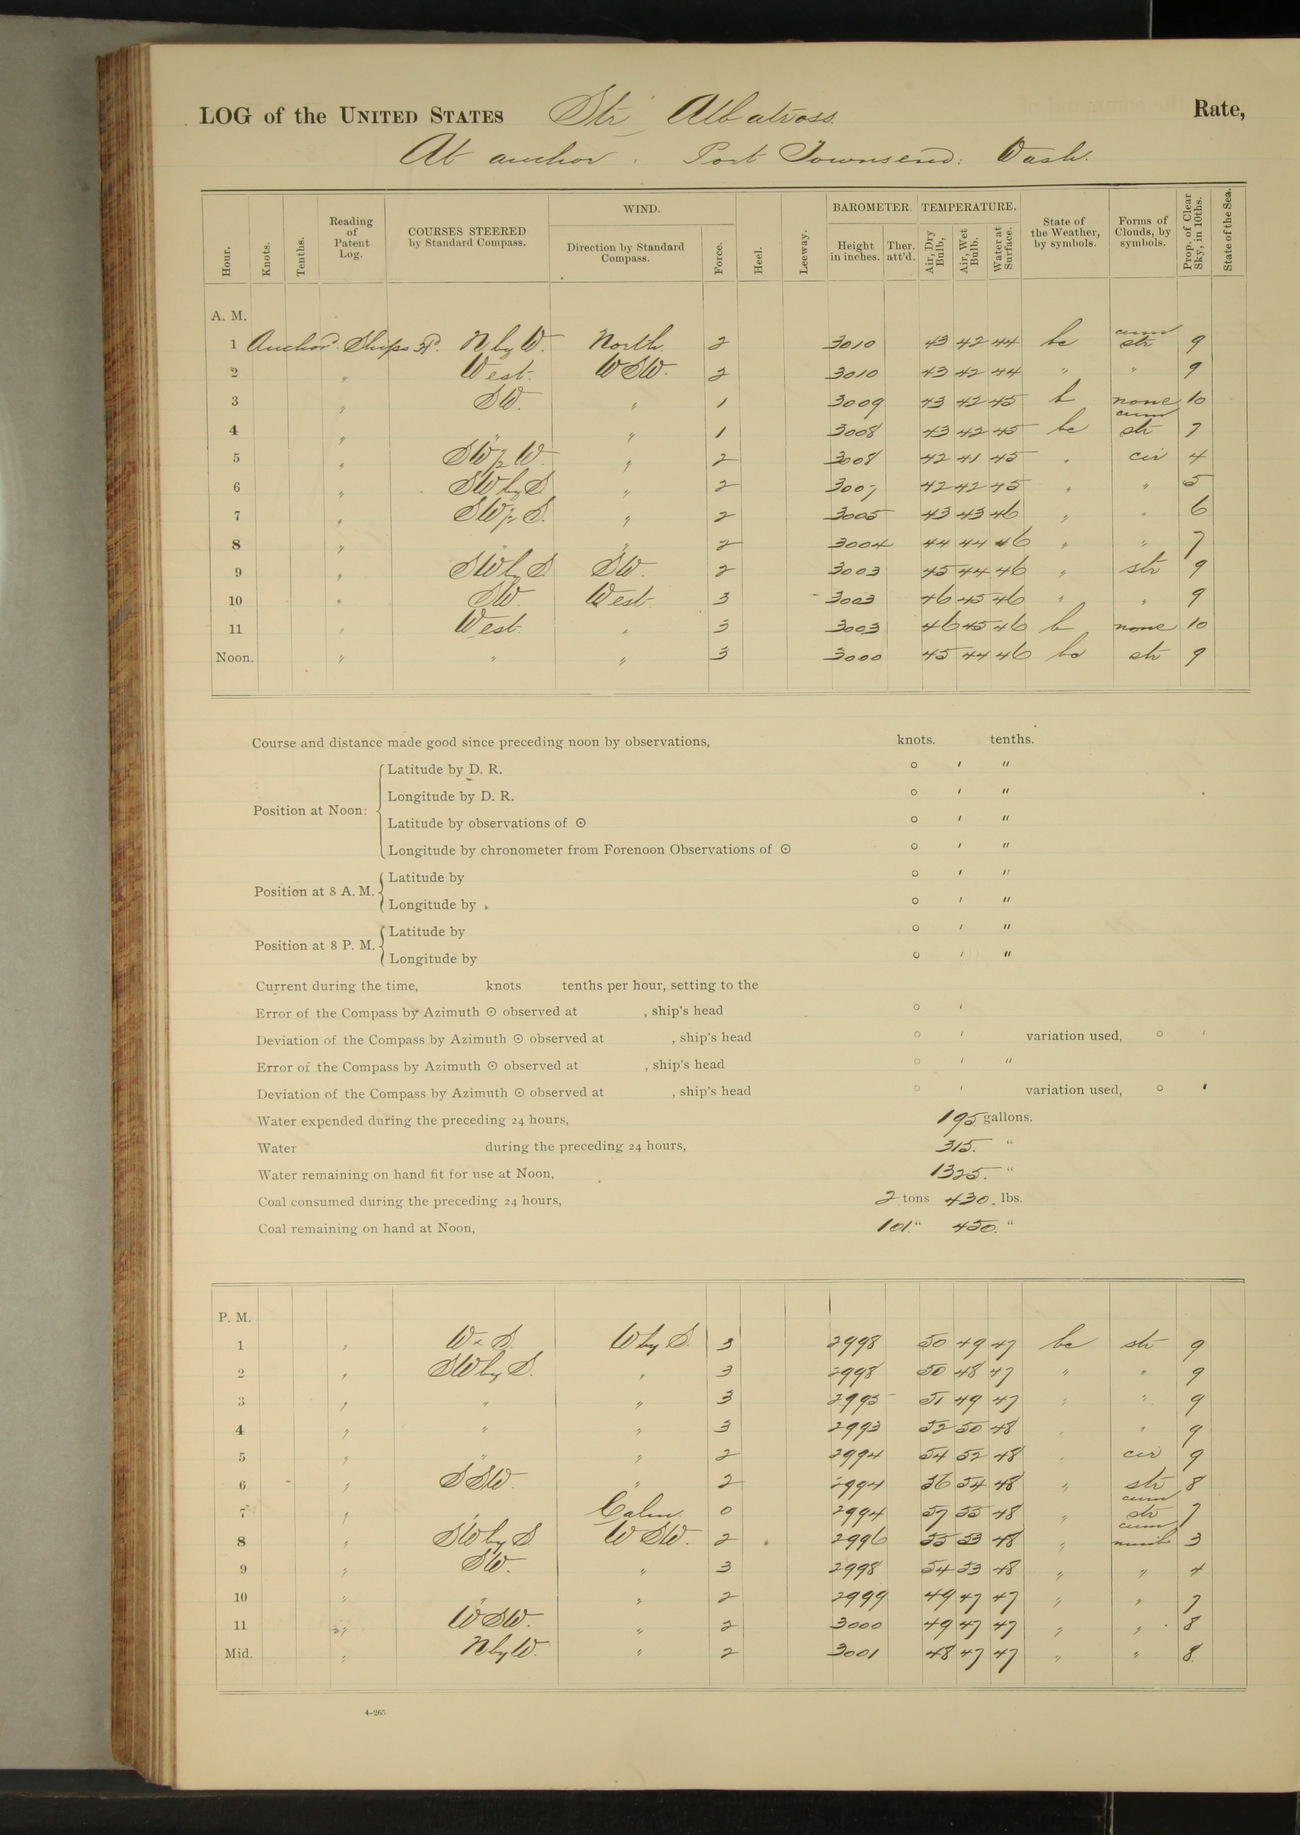 LOG of the UNITED STATES Str Albatross. Rate,
At anchor. Port Townsend. Wash.
Hour. Knots. Tenths. Reading of Patent Log. COURSES STEERED by Standard Compass. WIND. Direction by Standard Compass. Force. Heel. Leeway. BAROMETER. Height in inches. Ther. att'd. TEMPERATURE. Air, Dry Bulb, Air, Wet Bulb. Water at Surface. State of the Weather, by symbols. Forms of Clouds, by symbols. Prop. of Clear Sky, in 10ths. State of the Sea.
A. M.
1 Anchor. Ships N by W. North 2 3010 43 42 44 bc cum str 9
2 " West. WSW. 2 3010 43 42 44 " " 9
3 " SW. " 1 3009 43 42 45 b none 10
4 " " " 1 3008 43 42 45 bc cum str 7
5 " SW½W. " 2 3008 42 41 45 " cir 4
6 " SW by S " 2 3007 42 42 45 " " 5
7 " SW½S. " 2 3005 43 43 46 " " 6
8 " " " 2 3004 44 44 46 " " 7
9 " SW by S SW. 2 3003 45 44 46 " str 9
10 " SW. West 3 3003 46 45 46 " " 9
11 " West. " 3 3003 46 45 46 b none 10
Noon. " " " 3 3000 45 44 46 bc str 9
Course and distance made good since preceding noon by observations, knots. tenths.
Position at Noon: Latitude by D. R. ° ′ ″
Longitude by D. R. ° ′ ″
Latitude by observations of ⊙ ° ′ ″
Longitude by chronometer from Forenoon Observations of ⊙ ° ′ ″
Position at 8 A. M. Latitude by ° ′ ″
Longitude by ° ′ ″
Position at 8 P. M. Latitude by ° ′ ″
Longitude by ° ′ ″
Current during the time, knots tenths per hour, setting to the
Error of the Compass by Azimuth ⊙ observed at , ship's head ° ′
Deviation of the Compass by Azimuth ⊙ observed at , ship's head ° ′ variation used, ° ′
Error of the Compass by Azimuth ⊙ observed at , ship's head ° ′ ″
Deviation of the Compass by Azimuth ⊙ observed at , ship's head ° ′ variation used, ° ′
Water expended during the preceding 24 hours, 195 gallons.
Water during the preceding 24 hours, 315. "
Water remaining on hand fit for use at Noon, 1325. "
Coal consumed during the preceding 24 hours, 2 tons 430. lbs.
Coal remaining on hand at Noon, 101. " 450. "
P. M.
1 " W x S. W by S. 3 2998 50 49 47 bc str 9
2 " SW by S. " 3 2998 50 48 47 " " 9
3 " " " 3 2995 51 49 47 " " 9
4 " " " 3 2993 52 50 48 " " 9
5 " " " 2 2994 54 52 48 " cir 9
6 " SSW. " 2 2994 56 54 48 " str 8
7 " " Calm. 0 2994 57 55 48 " cum str 7
8 " SW by S. WSW. 2 2996 55 53 48 " cum nimb 3
9 " SW. " 3 2998 54 53 48 " " 4
10 " " " 2 2999 49 47 47 " " 7
11 " WSW. " 2 3000 49 47 47 " " 8
Mid. " N by W. " 2 3001 48 47 47 " " 8.
4-265